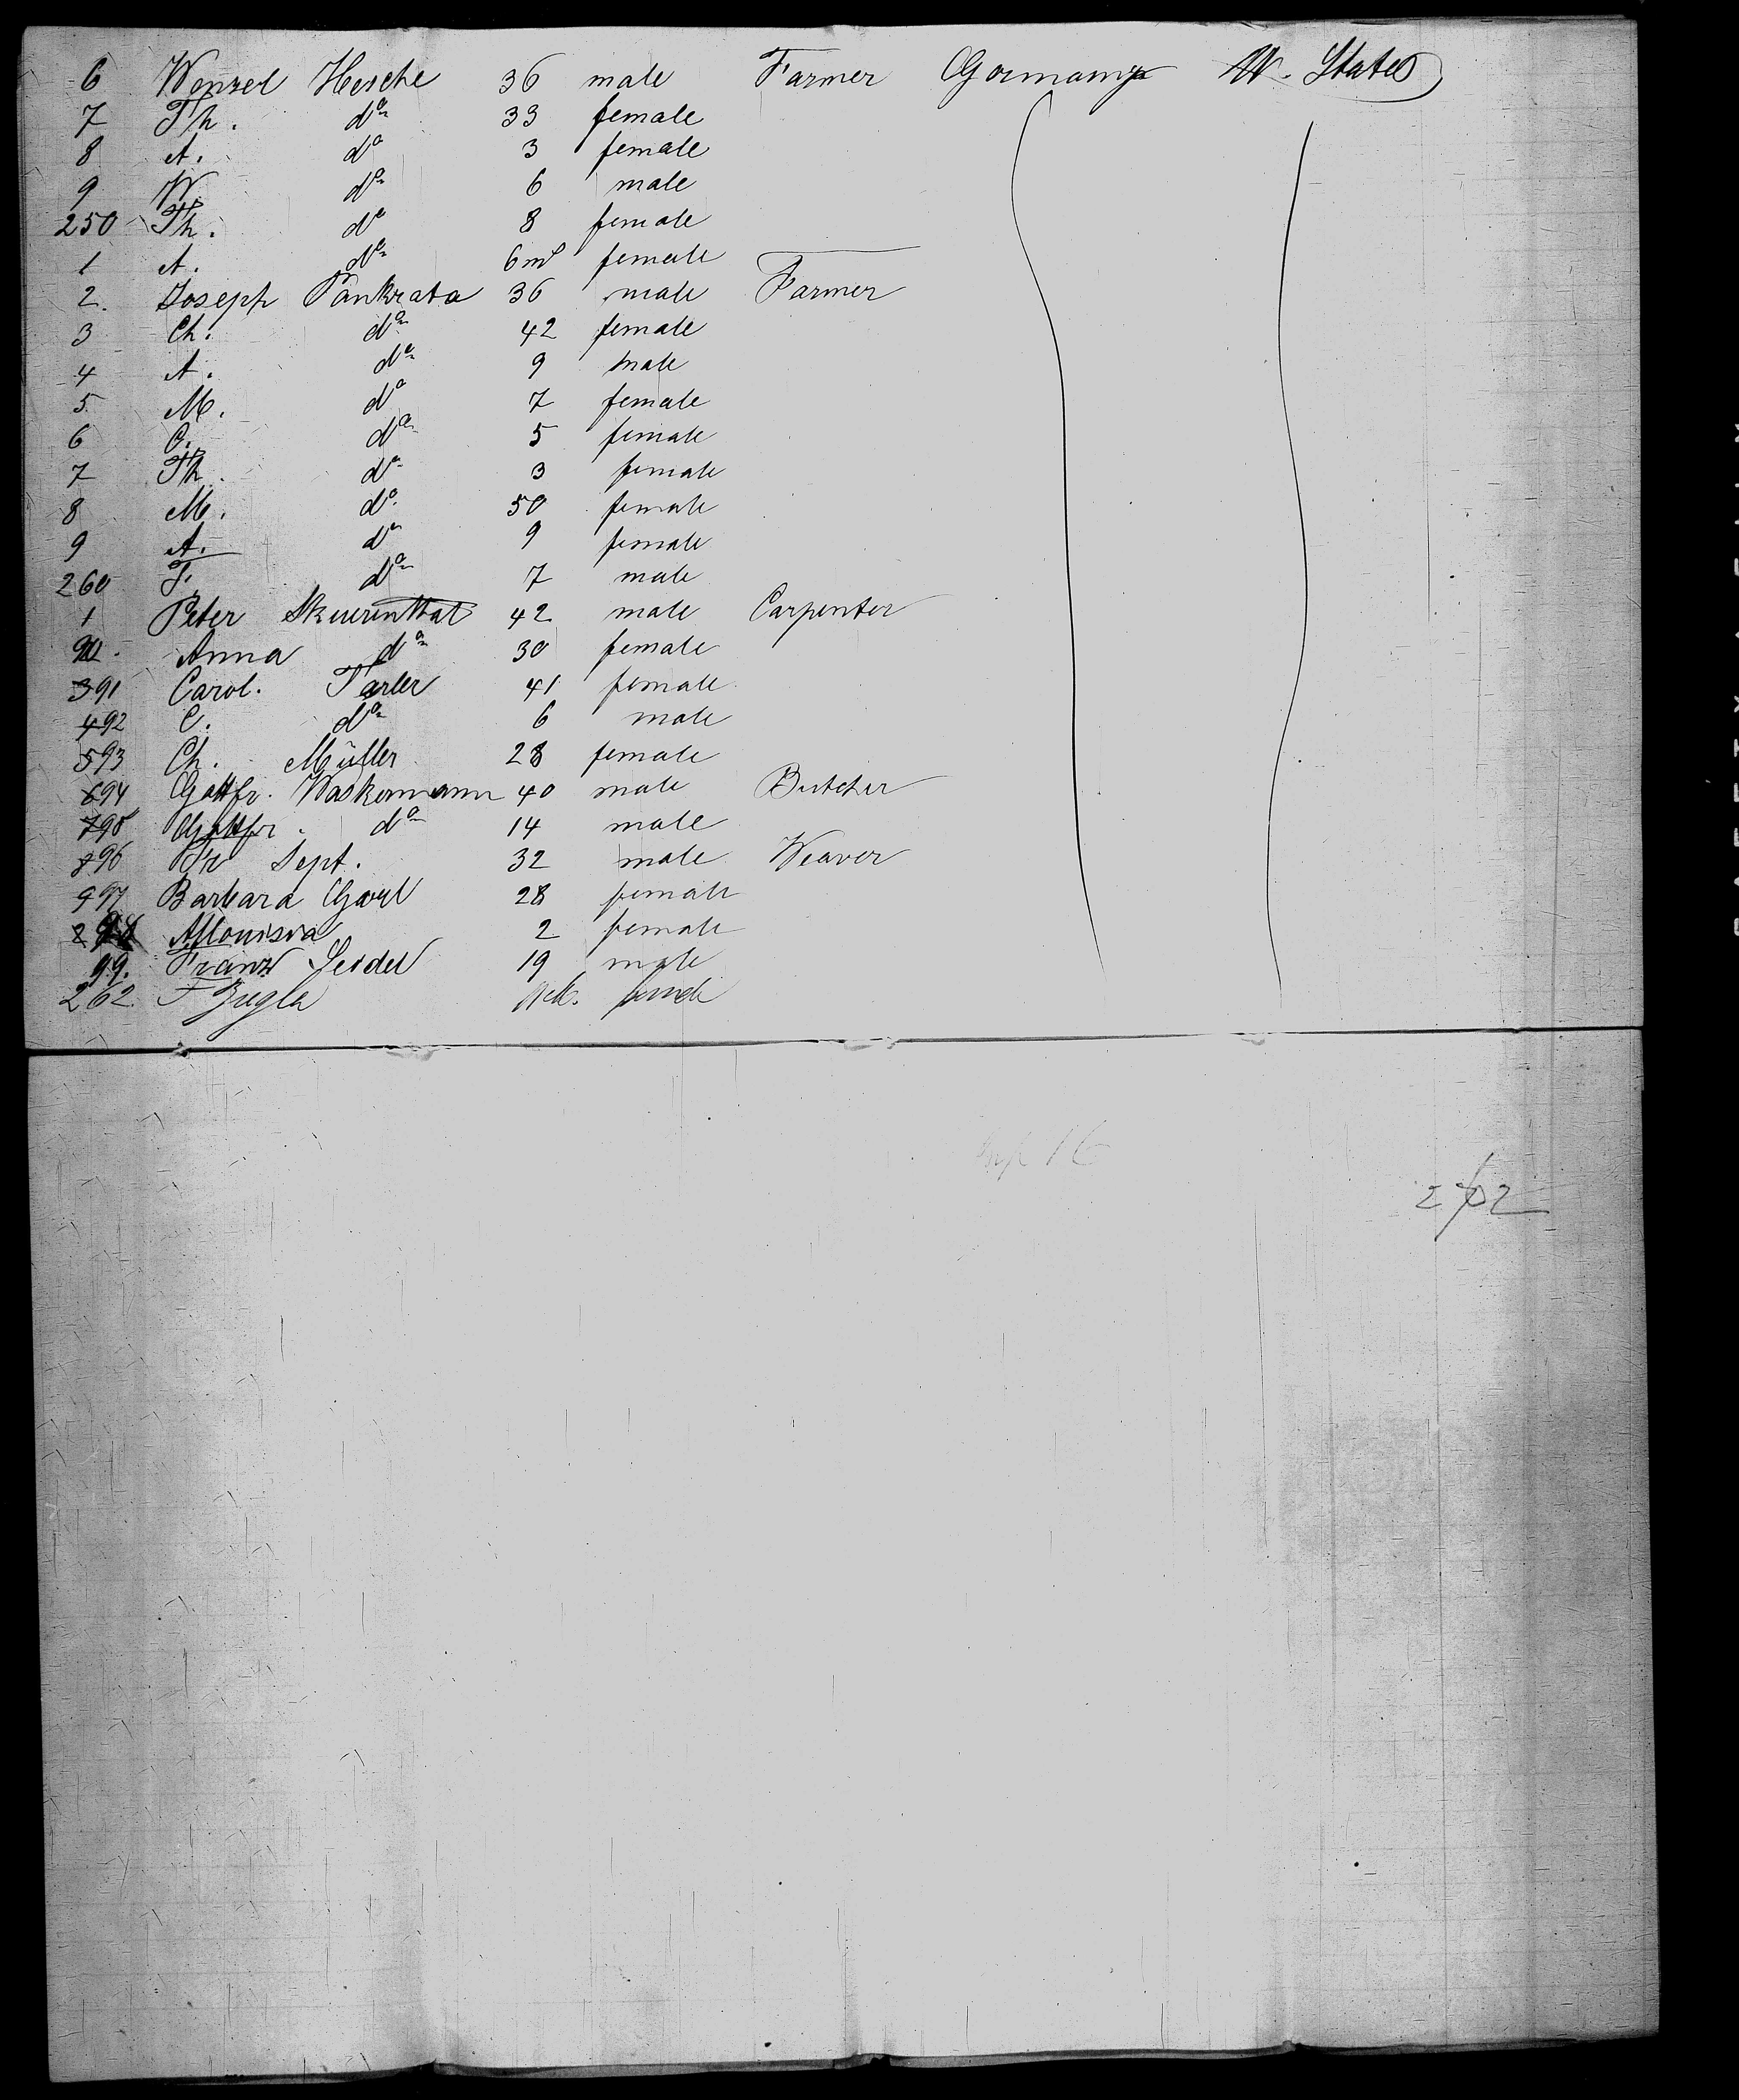 6 Wenzel Hesche 36 male Farmer Germany U. States
7 Th. do 33 female
8 A. do 3 female
9 W. do 6 male
250 Th. do 8 female
1 A. do 6 ms female
2. Joseph Pankrata 36 male Farmer
3 Ch. do 42 female
4 A. do 9 male
5 M. do 7 female
6 C. do 5 female
7 Th. do 3 female
8 M. do 50 female
9 A. do 9 female
260 do 7 male
1 Peter 42 male Carpenter
Anna do 30 female
391 Carol. 41 female
492 C. do 6 male
593 Ch. Müller 28 female
694 Gottfr. Waskermann 40 male Butcher
795 Gottfr. do 14 male
896 Fr Sept. 32 male Weaver
997 Barbara 28 female
2 female
99. Franz Seidel 19 male
262. F Ziegler
262